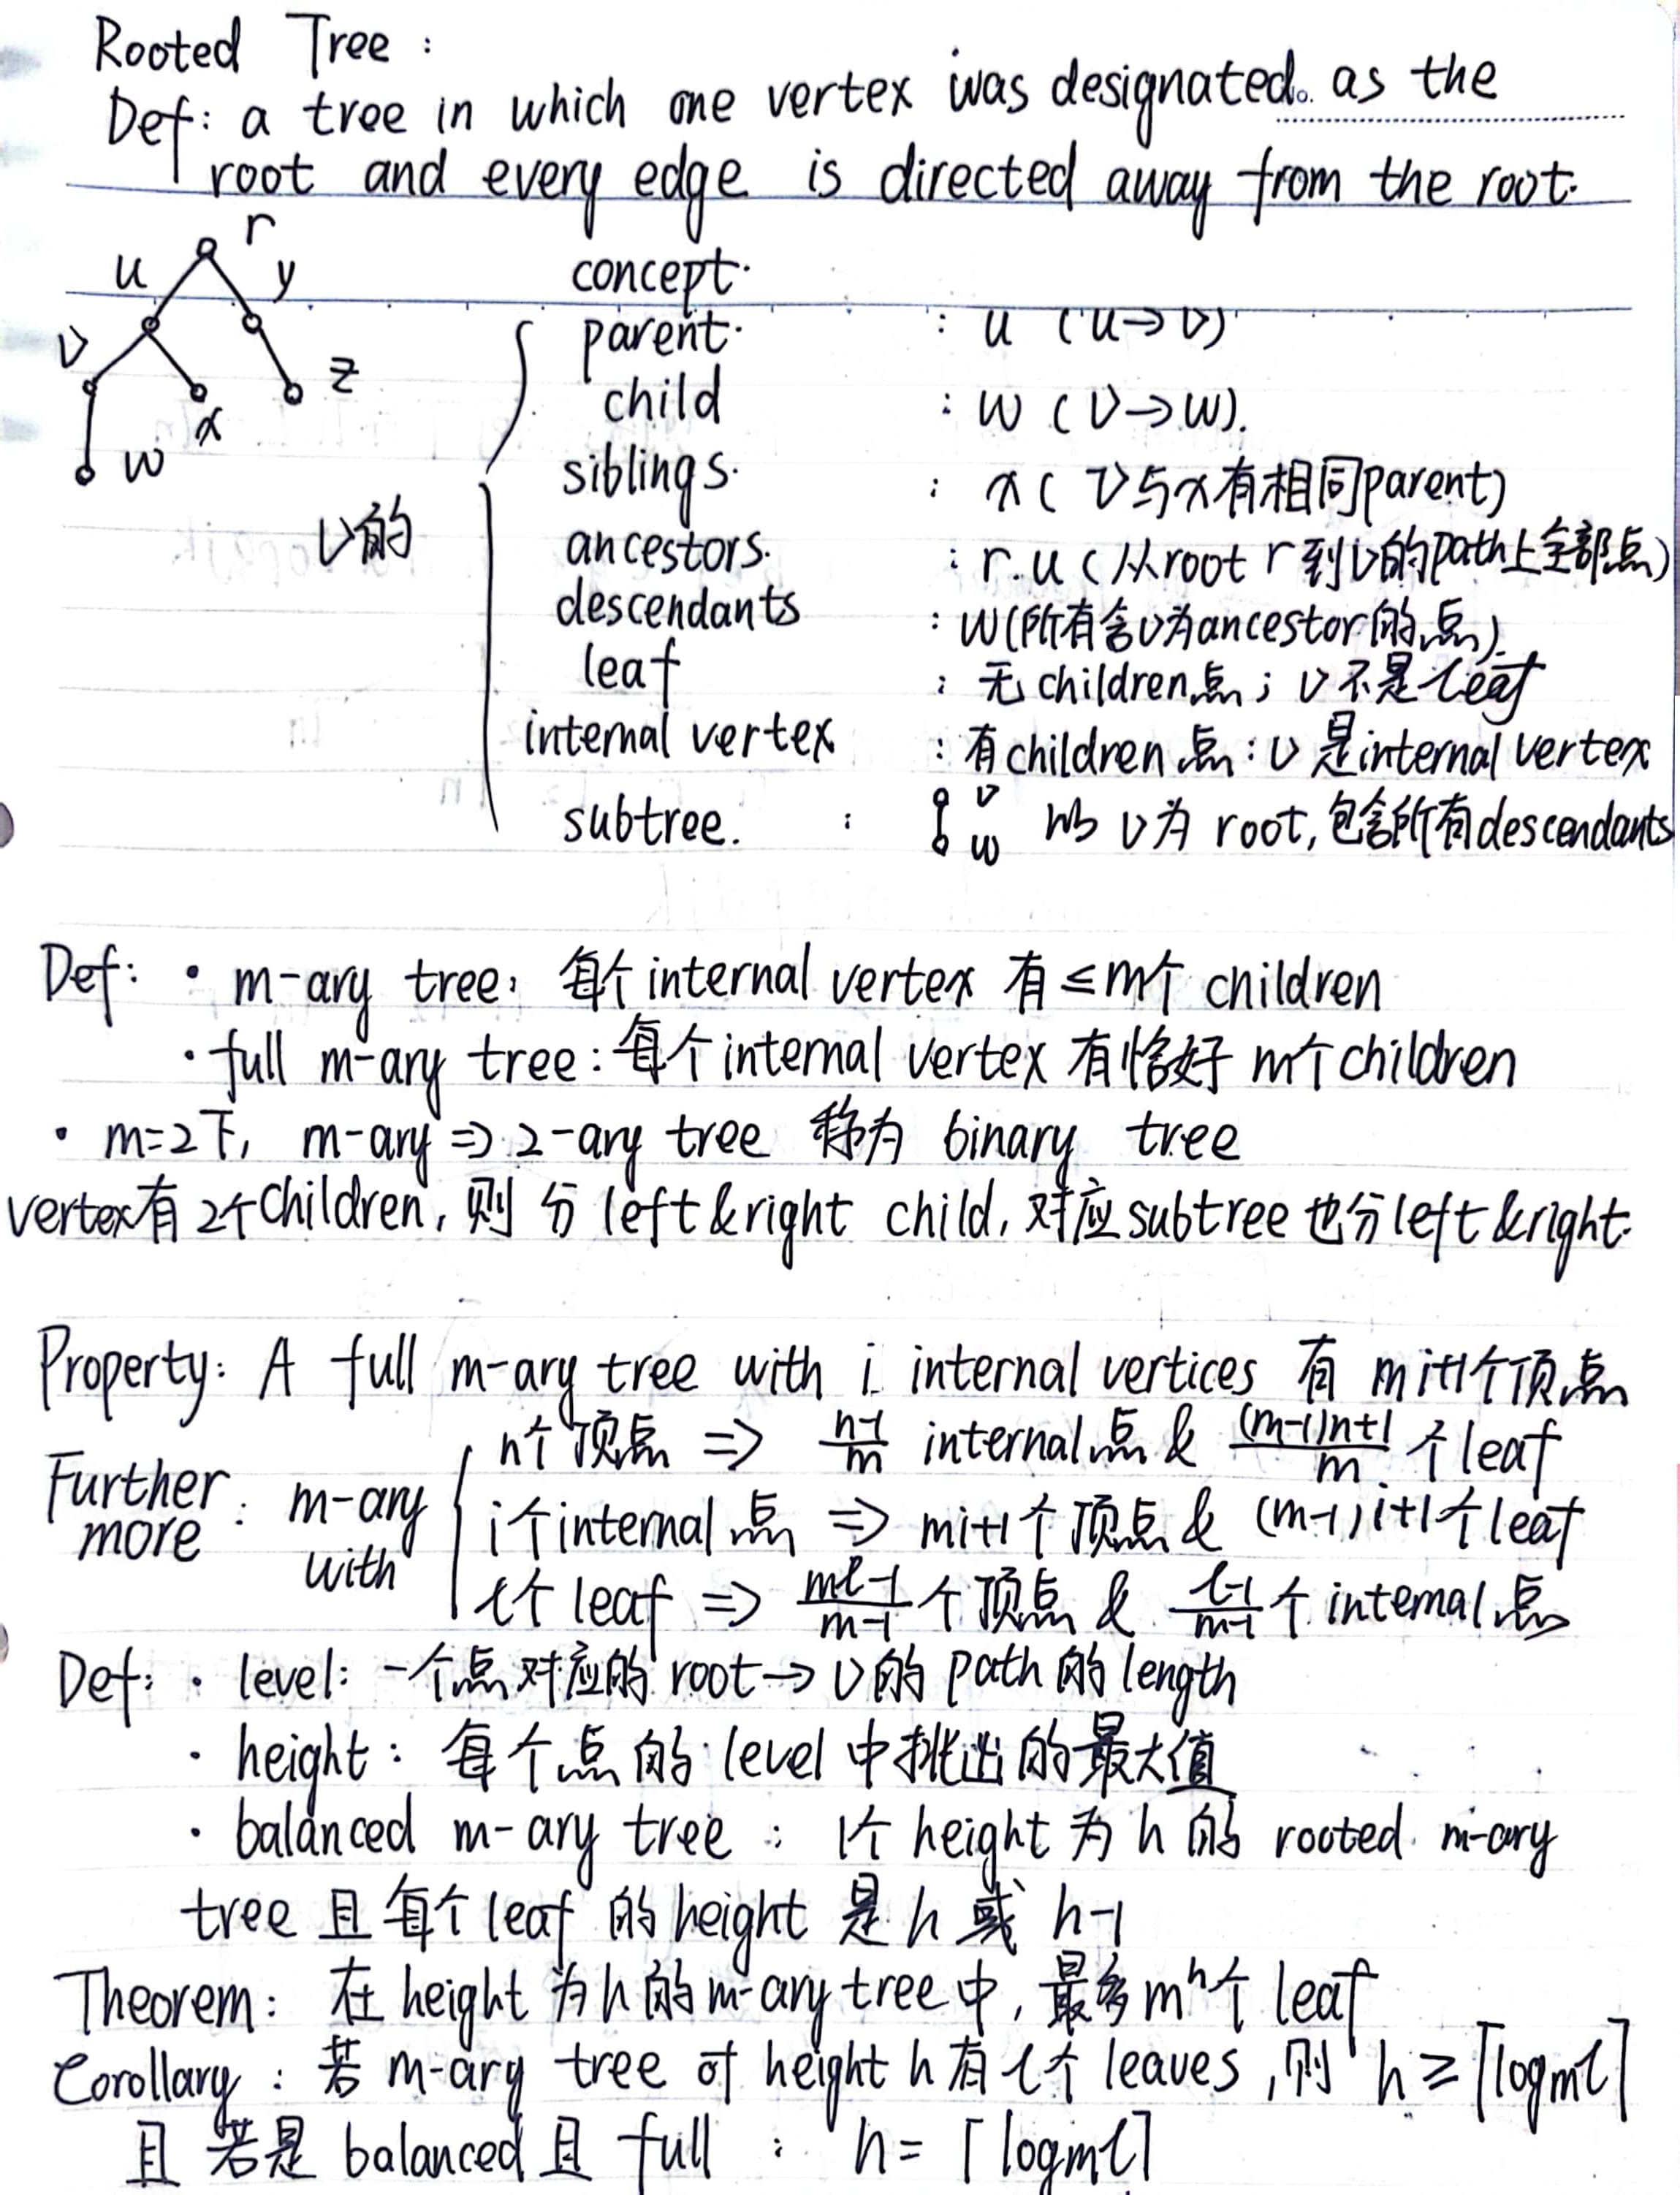 Rooted Tree :
Def: a tree in which one vertex was designated. as the
root and every edge is directed away from the root.
r
u y
v z
x
w
concept.
parent. : u (u→v)
child : w (v→w).
siblings. : x ( v与x有相同parent)
v的
ancestors. : r.u ( 从root r到v的path上全部点)
descendants : w(所有含v为ancestor的点)
leaf : 无children点; v不是leaf
internal vertex : 有children点: v是internal vertex
subtree. : v w 以v为root, 包含所有descendants
Def: • m-ary tree: 每个internal vertex 有≤m个 children
• full m-ary tree: 每个internal vertex 有恰好 m个children
• m=2下, m-ary ⇒ 2-ary tree 称为 binary tree
vertex有2个children, 则分left & right child, 对应subtree也分left & right.
Property: A full m-ary tree with i internal vertices 有 mi+1个顶点
Further more : m-ary with
n个顶点 ⇒ (n-1)/m internal点 & ((m-1)n+1)/m 个leaf
i个internal点 ⇒ mi+1个顶点 & (m-1)i+1个leaf
ℓ个leaf ⇒ (mℓ-1)/(m-1)个顶点 & (ℓ-1)/(m-1)个internal点
Def: • level: 一个点对应的root→v的path的length
• height: 每个点的level中挑出的最大值
• balanced m-ary tree : 1个height为h的 rooted m-ary
tree 且每个leaf的height是h或 h-1
Theorem: 在height为h的m-ary tree中, 最多mʰ个leaf
Corollary : 若 m-ary tree of height h有ℓ个 leaves, 则 h ≥ ⌈logmℓ⌉
且 若是 balanced且 full : h = ⌈logmℓ⌉